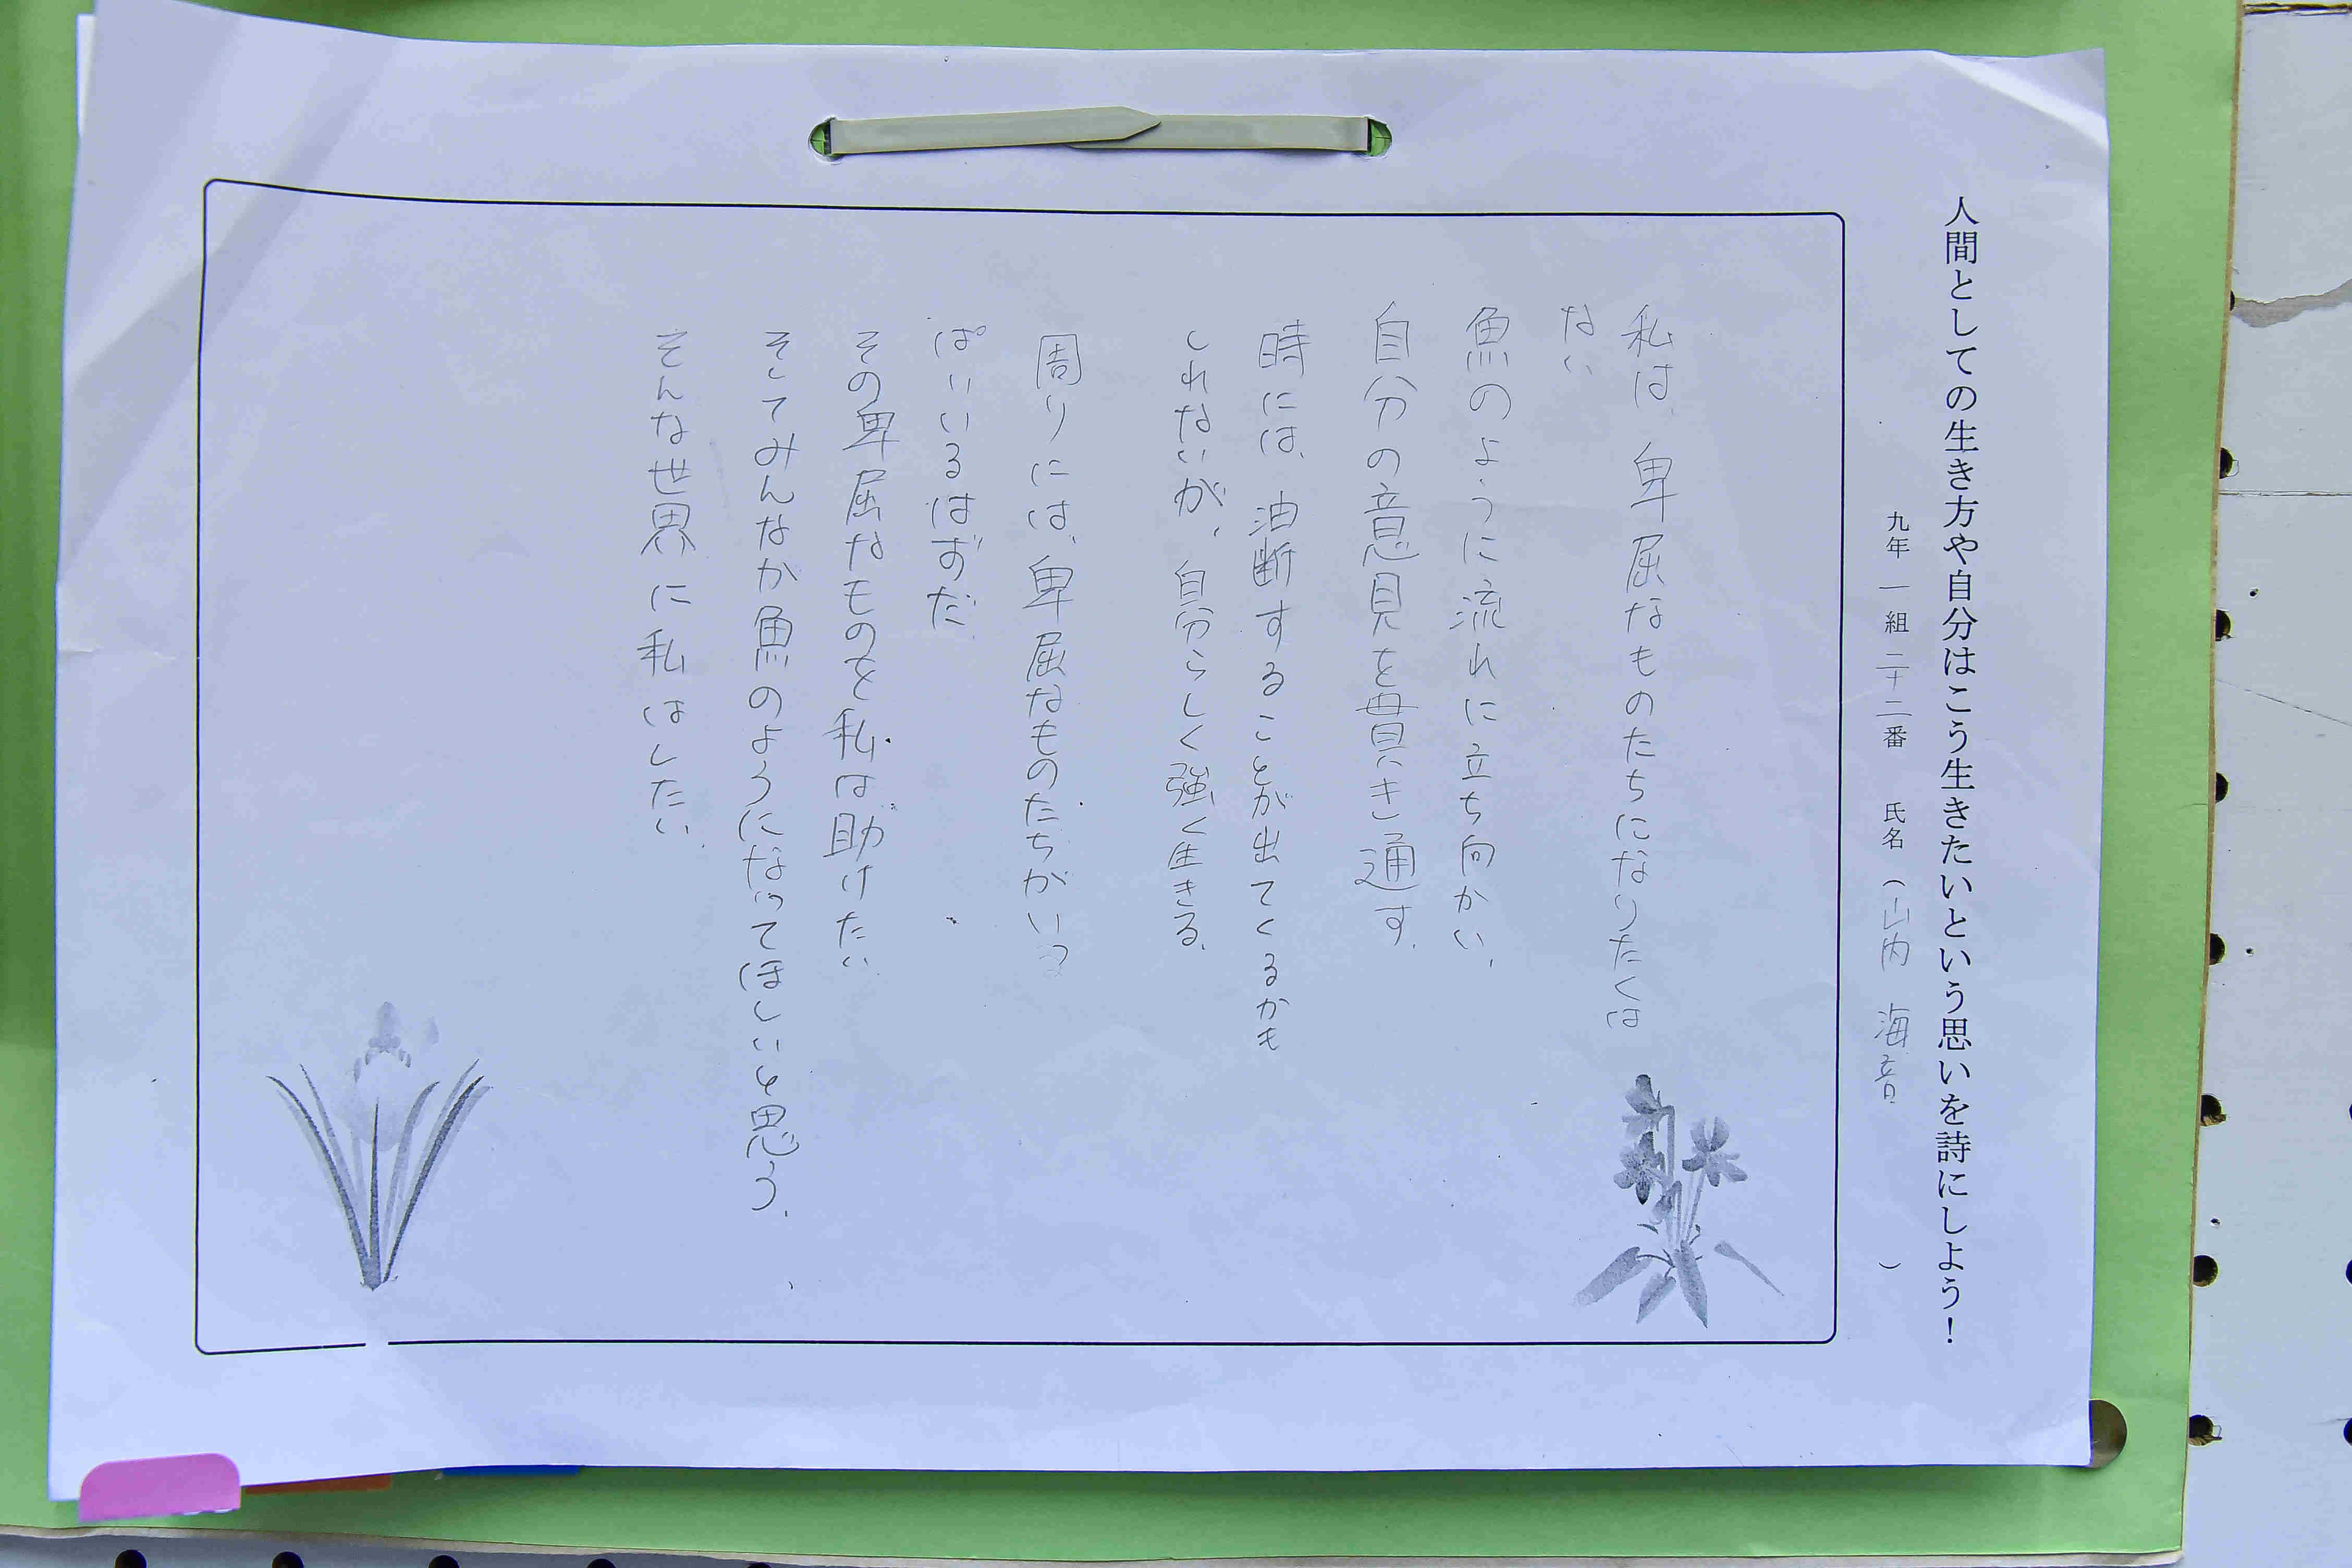 人間としての生き方や自分はこう生きたいという思いを詩にしよう！
九年 一組 二十二番 氏名（山内 海音 ）
私は、卑屈なものたちになりたくは
ない
魚のように流れに立ち向かい、
自分の意見を貫き通す。
時には、油断することが出てくるかも
しれないが、自分らしく強く生きる。
周りには、卑屈なものたちがいっ
ぱいいるはずだ
その卑屈なものを私は助けたい
そしてみんなが魚のようになってほしいと思う。
そんな世界に私はしたい。